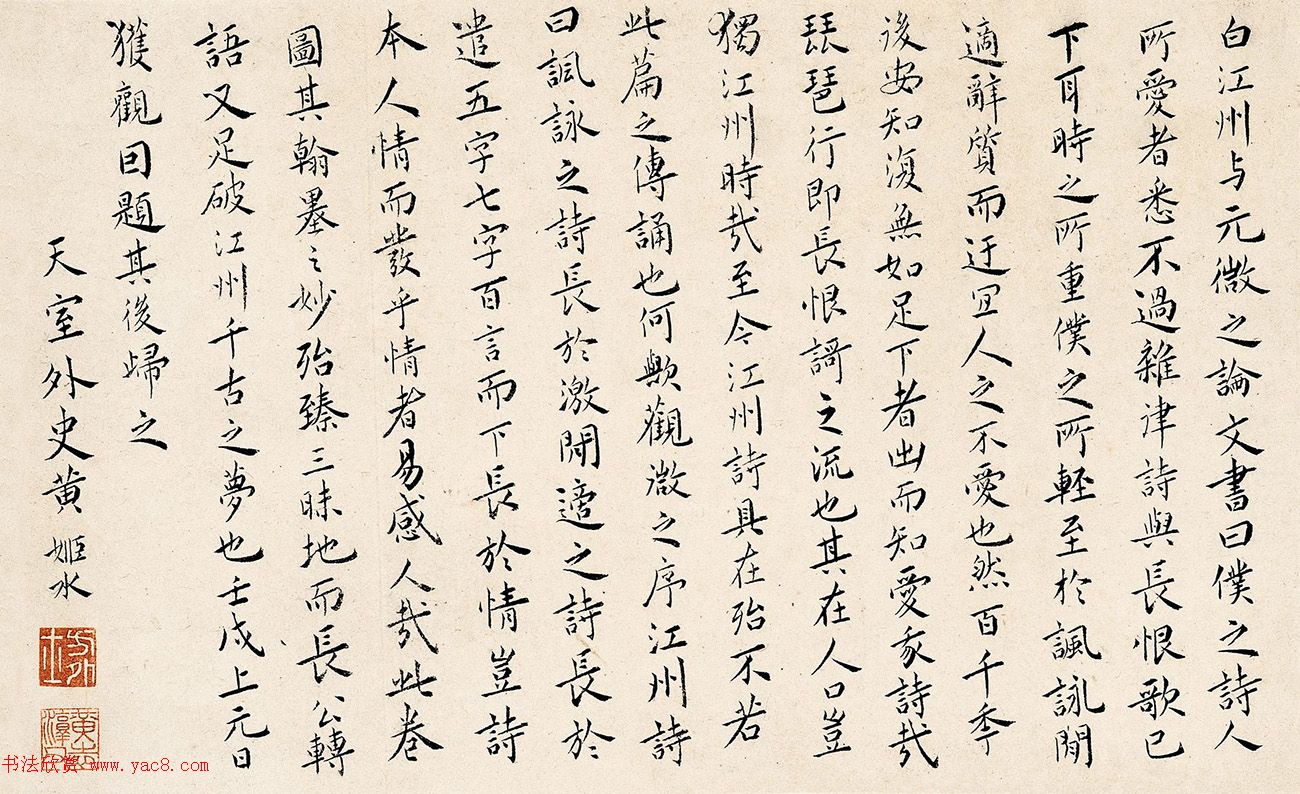 白江州与元微之論文書曰僕之詩人
所愛者悉不過雜律詩與長恨歌已
下耳時之所重僕之所輕至於諷詠閒
適辭質而迂宜人之不愛也然百千季
後安知復無如足下者出而知愛我詩哉
琵琶行即長恨謌之流也其在人口豈
獨江州時哉至今江州詩具在殆不若
此篇之傳誦也何歟觀微之序江州詩
曰諷詠之詩長於激閒適之詩長於
遣五字七字百言而下長於情豈詩
本人情而發乎情者易感人哉此卷
圖其翰墨之妙殆臻三昧地而長公轉
語又足破江州千古之夢也壬戌上元日
獲觀因題其後歸之
天室外史黄姬水
书法欣赏 www.yac8.com